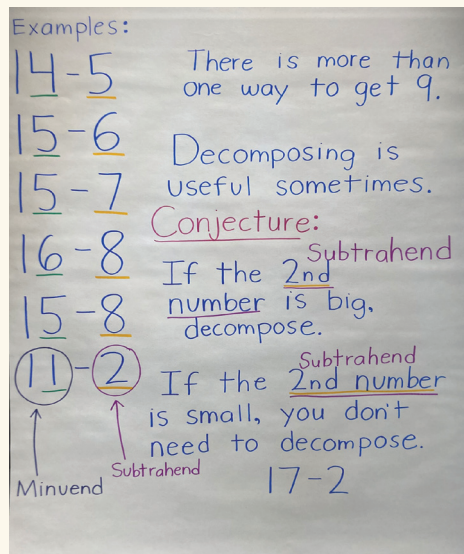 Examples:
14-5
15-6
15-7
16-8
15-8
11-2
Minuend
Subtrahend
There is more than
one way to get 9.
Decomposing is
useful sometimes.
Conjecture:
Subtrahend
If the 2nd
number is big,
decompose.
Subtrahend
If the 2nd number
is small, you don't
need to decompose.
17-2